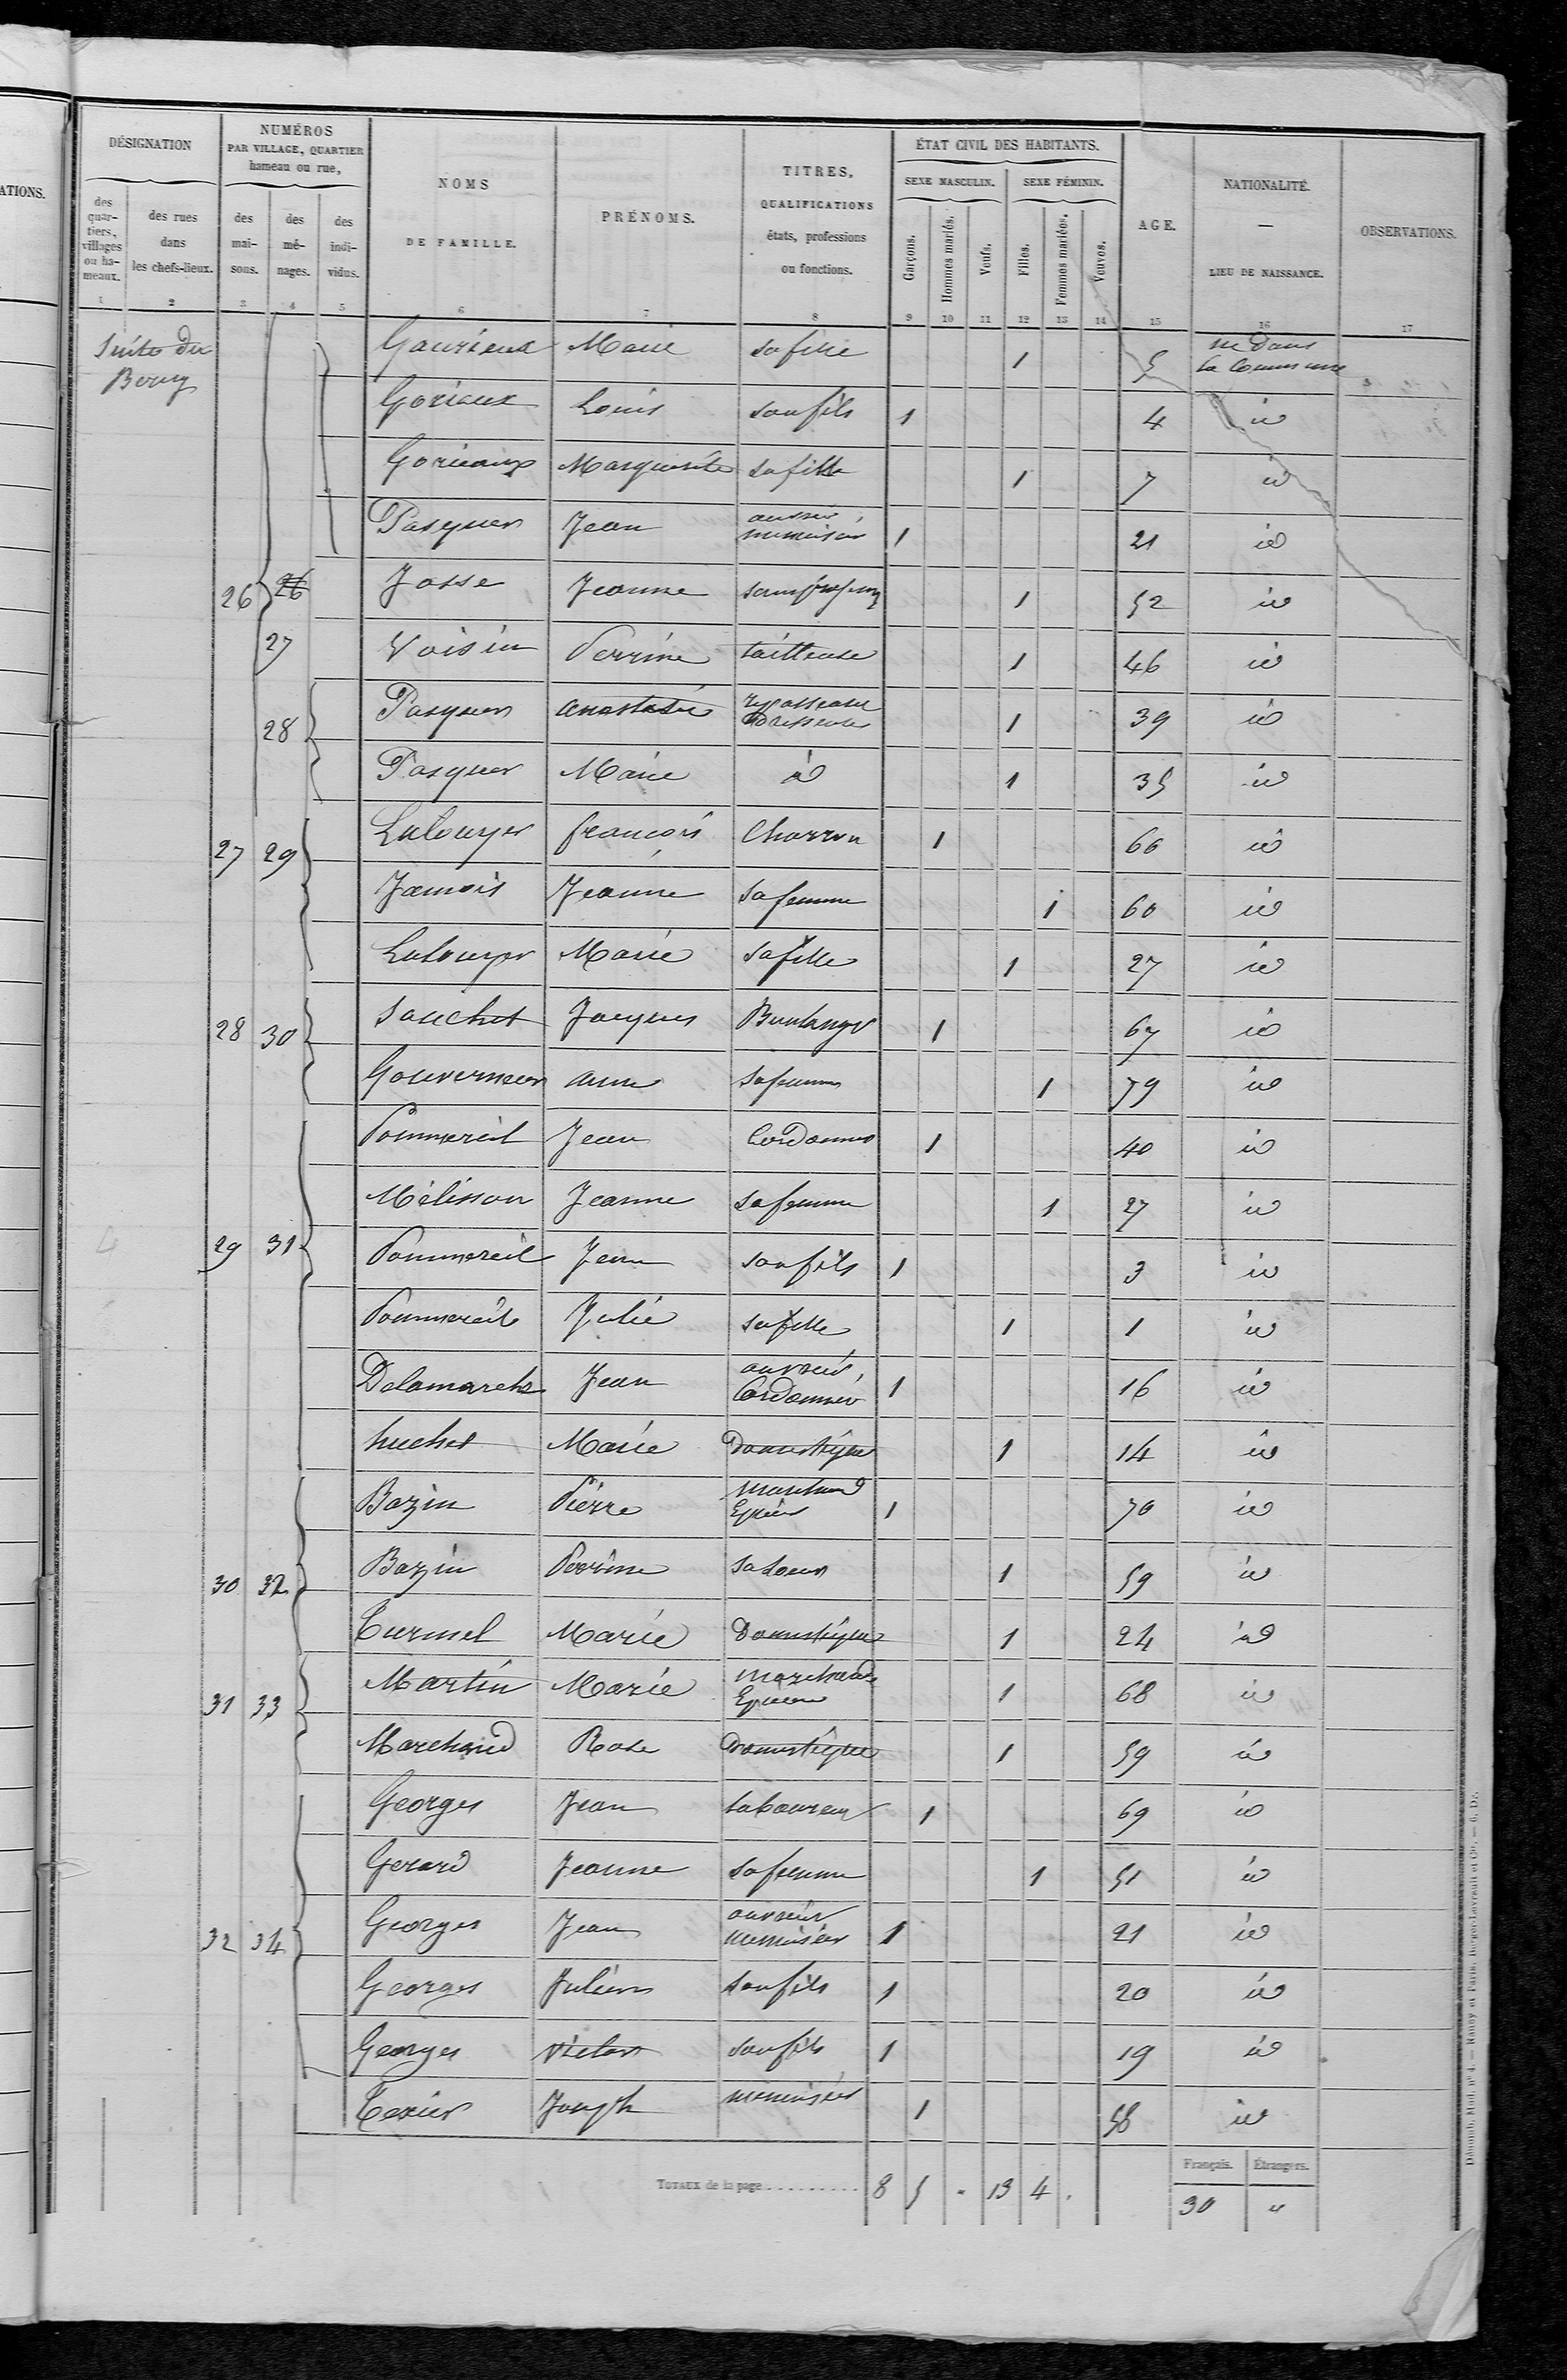 ATIONS.
DÉSIGNATION
NUMÉROS
PAR VILLAGE, QUARTIER
hameau ou rue,
NOMS
DE FAMILLE.
PRÉNOMS.
TITRES,
QUALIFICATIONS
états, professions
ou fonctions.
ÉTAT CIVIL DES HABITANTS.
SEXE MASCULIN. SEXE FÉMININ.
AGE.
NATIONALITÉ.
—
LIEU DE NAISSANCE.
OBSERVATIONS.
des quar-tiers, villages ou ha-meaux.
des rues dans les chefs-lieux.
des mai-sons.
des mé-nages.
des indi-vidus.
Garçons. Hommes mariés. Veufs. Filles. Femmes mariées. Veuves.
1 2 3 4 5 6 7 8 9 10 11 12 13 14 15 16 17
Suite du Bourg Gaurieux Marie sa fille 1 5 né dans la Commune
Goriaux Louis son fils 1 4 id
Gorieaux Marguerite sa fille 1 7 id
Pasquer Jean 1 21 id
26 26 Josse Jeanne 1 52 id
27 Voisin Perrine tailleuse 1 46 id
28 Pasquer anastasie 1 39 id
Pasquer Marie id 1 35 id
27 29 Lalouyer françois Charron 1 66 id
Jamois Jeanne sa femme 1 60 id
Lalouyer Marie sa fille 1 27 id
28 30 Sauchet Jacques Boulanger 1 67 id
Gouverneur anne sa femme 1 79 id
Pommereil Jean Cordonnier 1 40 id
Mélisson Jeanne sa femme 1 27 id
29 31 Pommereil Jean son fils 1 3 id
Pommereil Julie sa fille 1 1 id
Delamarche Jean ouvrier Cordonnier 1 16 id
huchet Marie Domestique 1 14 id
Bazin Pierre marchand Epicier 1 70 id
30 32 Bazin Perrine sa soeur 1 59 id
Turmel Marie Domestique 1 24 id
31 33 Martin Marie marchande Epicière 1 68 id
Marchand Rose Domestique 1 59 id
Georges Jean laboureur 1 69 id
Gerard Jeanne sa femme 1 51 id
32 34 Georges Jean ouvrier menuisier 1 21 id
Georges Julien son fils 1 20 id
Georges victor son fils 1 19 id
Texier Joseph menuisier 1 58 id
TOTAUX de la page.......... 8 5 " 13 4 .
Français. Étrangers.
30 "